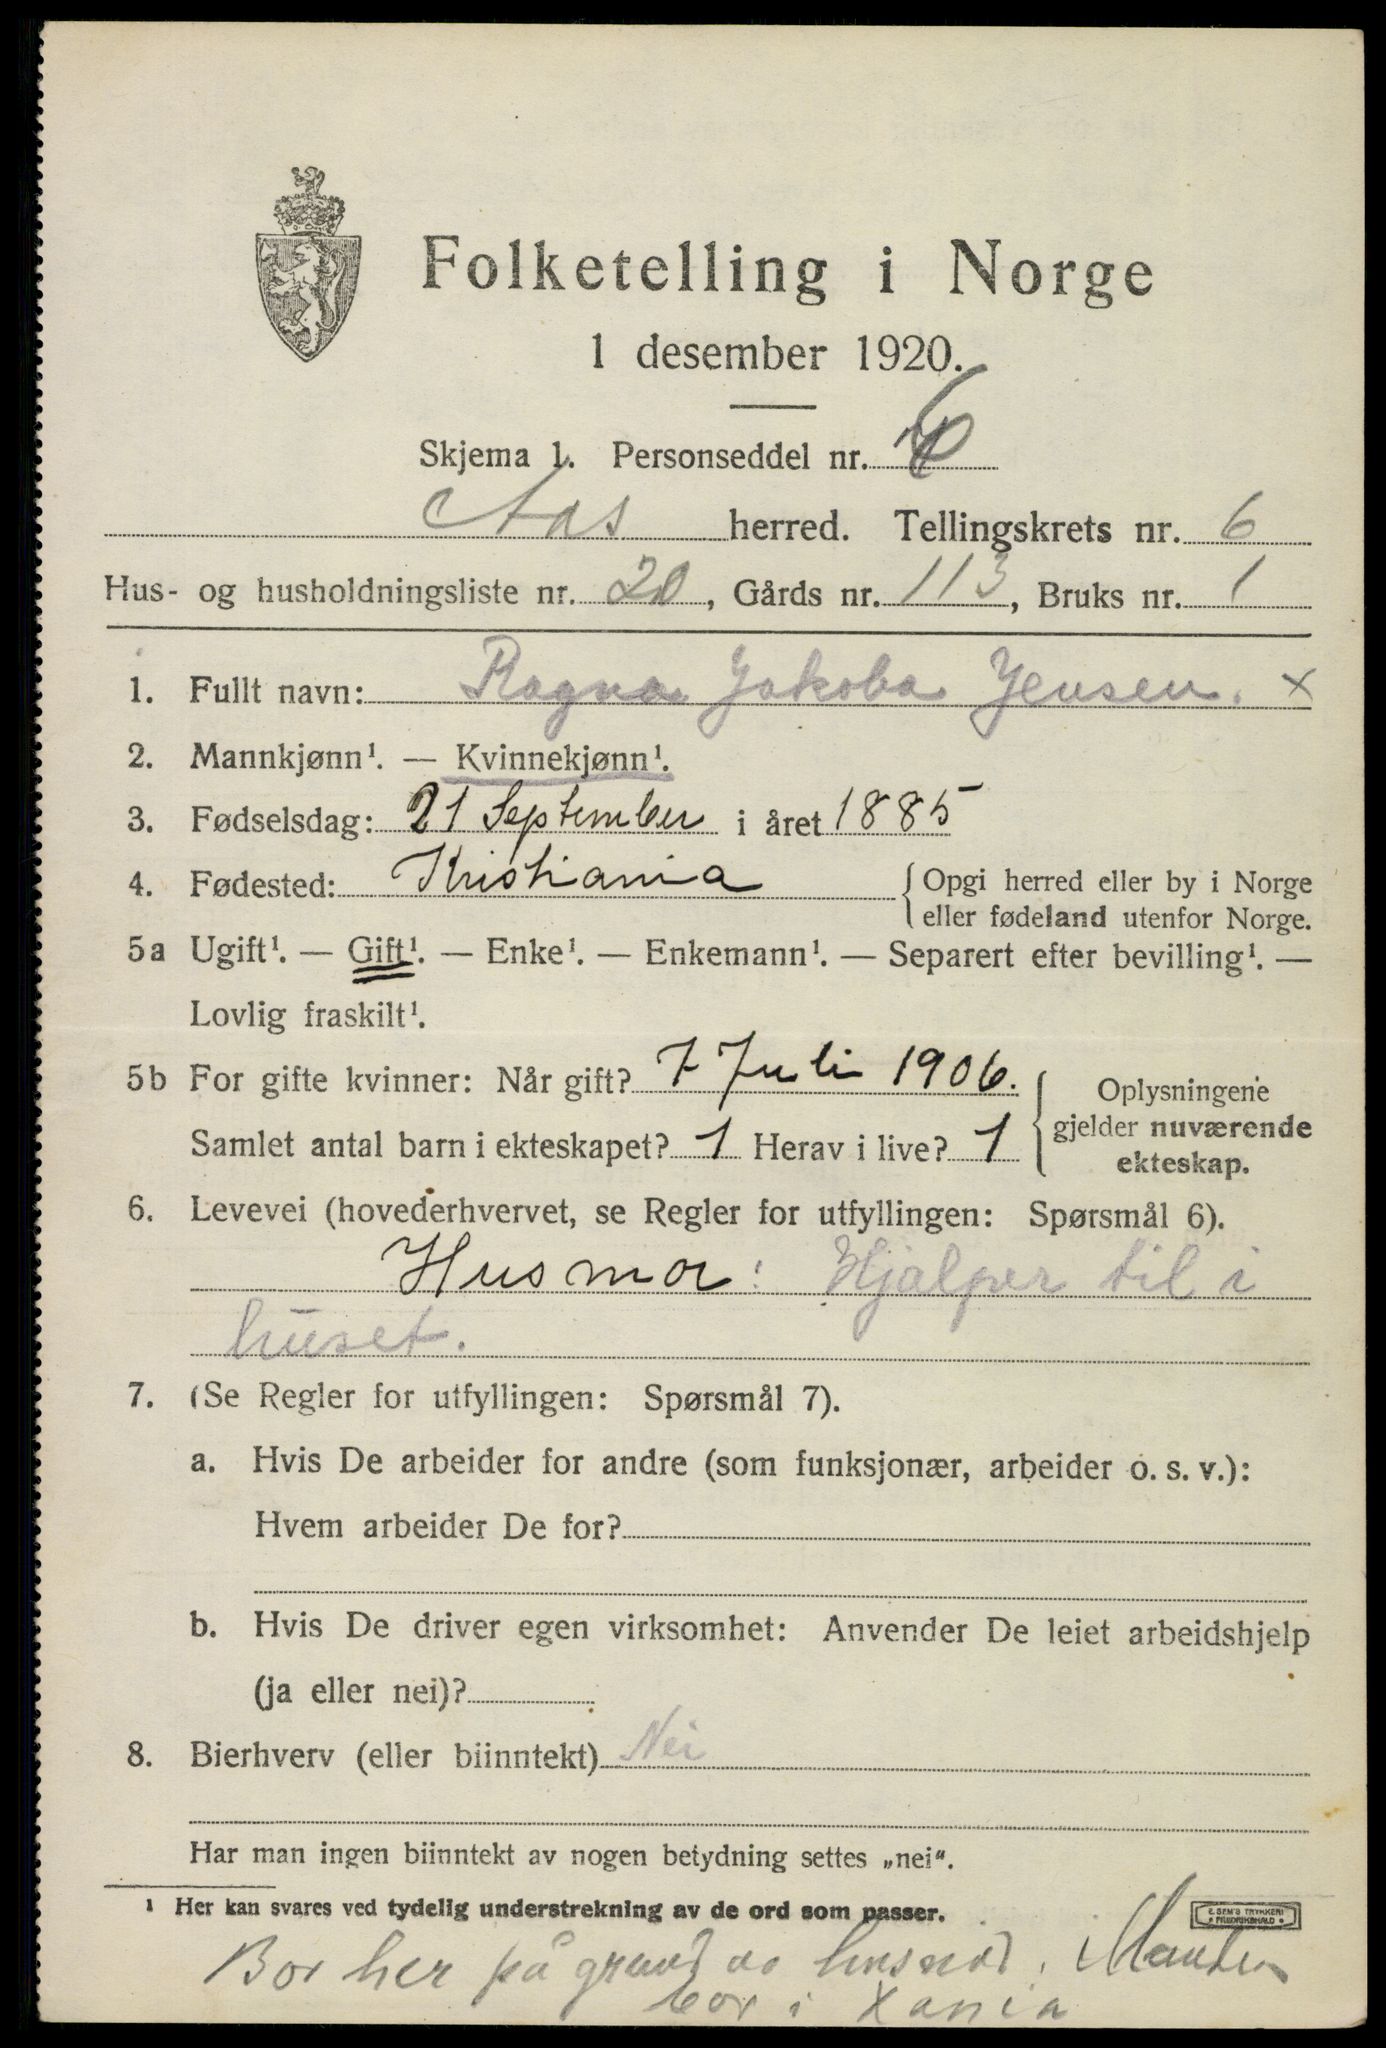 Folketelling i Norge
1 desember 1920.
Skjema 1. Personseddel nr. 6
Aas herred. Tellingskrets nr. 6
Hus- og husholdningsliste nr. 20, Gårds nr. 113, Bruks nr. 1
1. Fullt navn: Ragna Jakoba Jensen. x
2. Mannkjønn¹. — Kvinnekjønn¹.
3. Fødselsdag: 21 September i året 1885
4. Fødested: Kristiania {Opgi herred eller by i Norge
eller fødeland utenfor Norge.
5a Ugift¹. — Gift¹. — Enke¹. — Enkemann¹. — Separert efter bevilling¹. —
Lovlig fraskilt¹.
5b For gifte kvinner: Når gift? 7 Juli 1906. { Oplysningene
Samlet antal barn i ekteskapet? 1 Herav i live? 1 gjelder nuværende
ekteskap.
6. Levevei (hovederhvervet, se Regler for utfyllingen: Spørsmål 6).
Husmor: Hjælper til i
huset.
7. (Se Regler for utfyllingen: Spørsmål 7).
a. Hvis De arbeider for andre (som funksjonær, arbeider o. s. v.):
Hvem arbeider De for?
b. Hvis De driver egen virksomhet: Anvender De leiet arbeidshjelp
(ja eller nei)?
8. Bierhverv (eller biinntekt) Nei
Har man ingen biinntekt av nogen betydning settes „nei".
¹ Her kan svares ved tydelig understrekning av de ord som passer.
E. SEM'S TRYKKERI
FREDRIKSHALD
Bor her på grund av husnød. Manden
bor i Xania